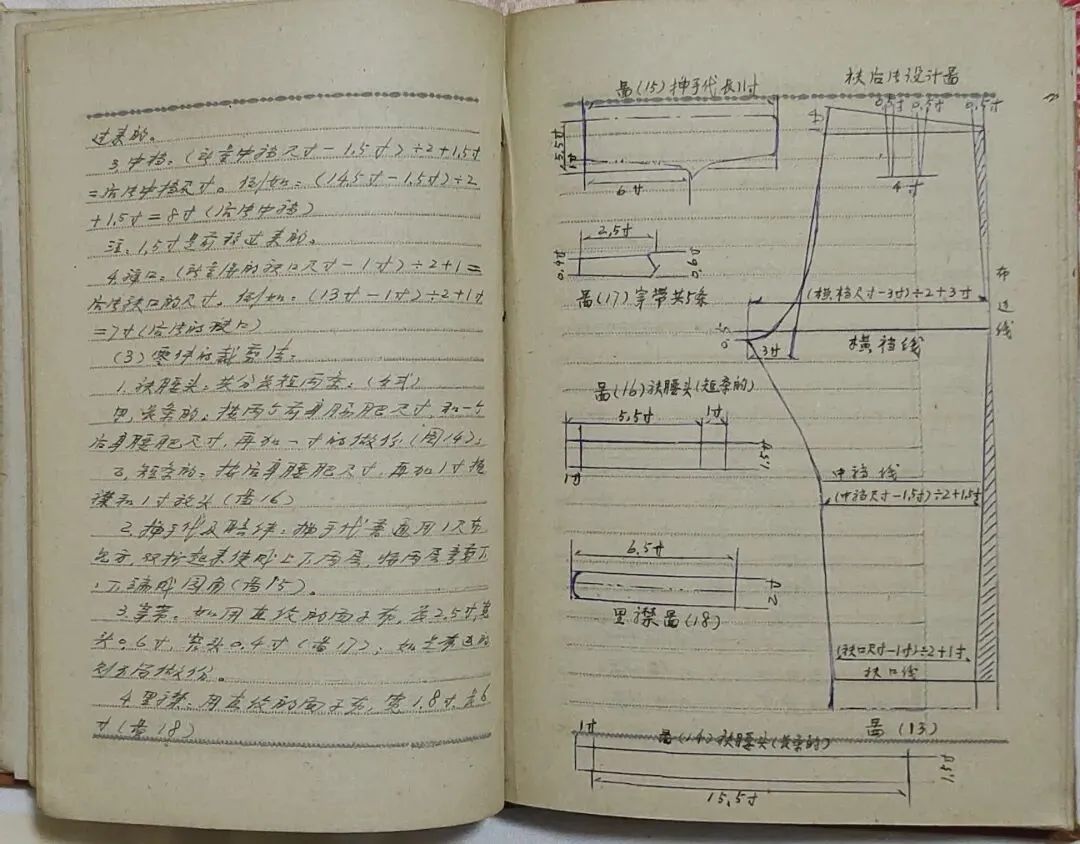 过来的。
3.中裆：(所量中裆尺寸－1.5寸)÷2+1.5寸
=后片中裆尺寸。例如：(14.5寸－1.5寸)÷2
+1.5寸=8寸(后片中裆)
注：1.5寸是前移过来的。
4.裤口：(所量得的袂口尺寸－1寸)÷2+1=
后片袂口的尺寸。例如：(13寸－1寸)÷2+1寸
=7寸(后片的袂口)
(3)零件的裁剪法：
1.袂腰头：共分长短两条：(方式)
甲，长条的：按两个前身腰肥尺寸，和一个
后身腰肥尺寸，再加一寸的做份(图14)；
乙，短条的：按后身腰肥尺寸，再加1寸搭
襻和1寸放头(啚16)
2.抻手代及贴件：抻手代普通用1尺布
双折起来使成上下两层，将两层
下端成园角(啚15)。
3.穿带：如用直纹的面子布，長2.5寸宽
头0.6寸，窄头0.4寸(啚17)；
做份。
4.里襟：用直纹的面子布，宽1.8寸，長6
寸(啚18)
啚(15)抻手代長11寸
5.5寸
1寸
6寸
2.5寸
0.4寸
0.6寸
啚(17)穿带共5条
啚(16)袂腰头(短条的)
5.5寸
1寸
1寸
1.5寸
6.5寸
2寸
里襟啚(18)
啚(14)袂腰头(長条的)
1寸
15.5寸
1.5寸
袂后片设计啚
0.5寸
0.5寸
0.5寸
4寸
(横裆尺寸－3寸)÷2+3寸
布边线
0.5
3寸
横裆线
中裆线
(中裆尺寸－1.5寸)÷2+1.5寸
(袂口尺寸－1寸)÷2+1寸
袂口线
啚(13)